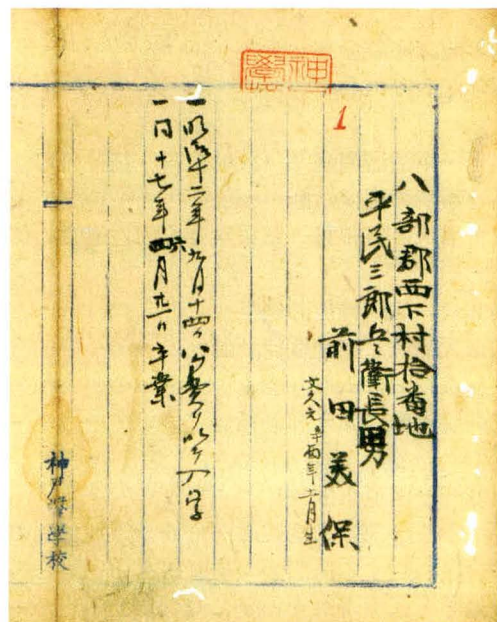 1
八部郡西下村拾番地
平民三郎兵衛長男
前田美保
文久元辛酉年二月生
一明治十二年九月十四日公費ヲ以テ入学
一同十七年六月廿一日卒業
神戸醫學校